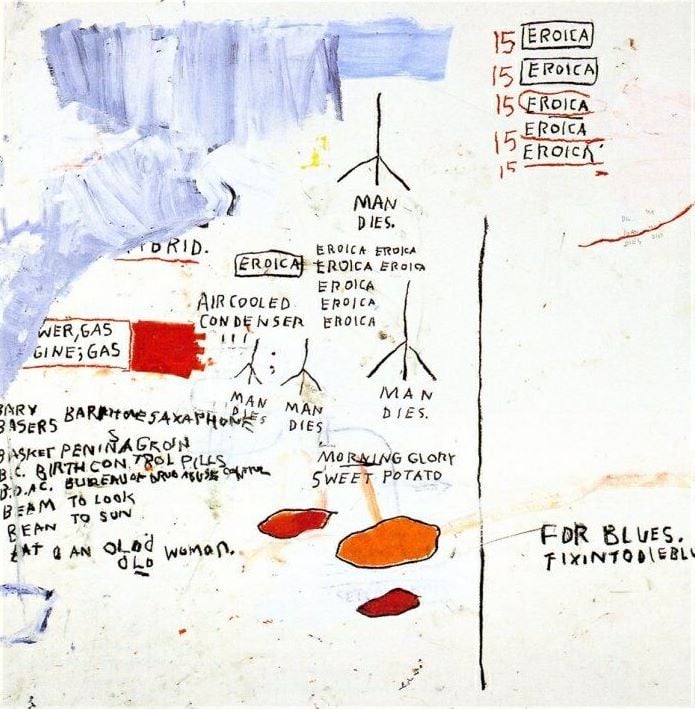 15 EROICA
15 EROICA
15 EROICA
15 EROICA
15 EROICA
MAN
DIES.
BRID.
EROICA
EROICA EROICA
EROICA EROICA
EROICA
EROICA
EROICA
AIRCOOLED
CONDENSER
WER, GAS
GINE; GAS
MAN
DIES
MAN
DIES
MAN
DIES.
BARY
BASERS BARITONE SAXAPHONE
BASKET PENINAGROIN
S
B.C. BIRTHCONTROL PILLS
B.D.A.C. BUREAU OF DRUG ABUSE CONTROL
BEAM TO LOOK
BEAN TO SUN
EAT AN OLD
OLD WOMAN.
MORNING GLORY
SWEET POTATO
FOR BLUES.
FIXINTODIEBLU